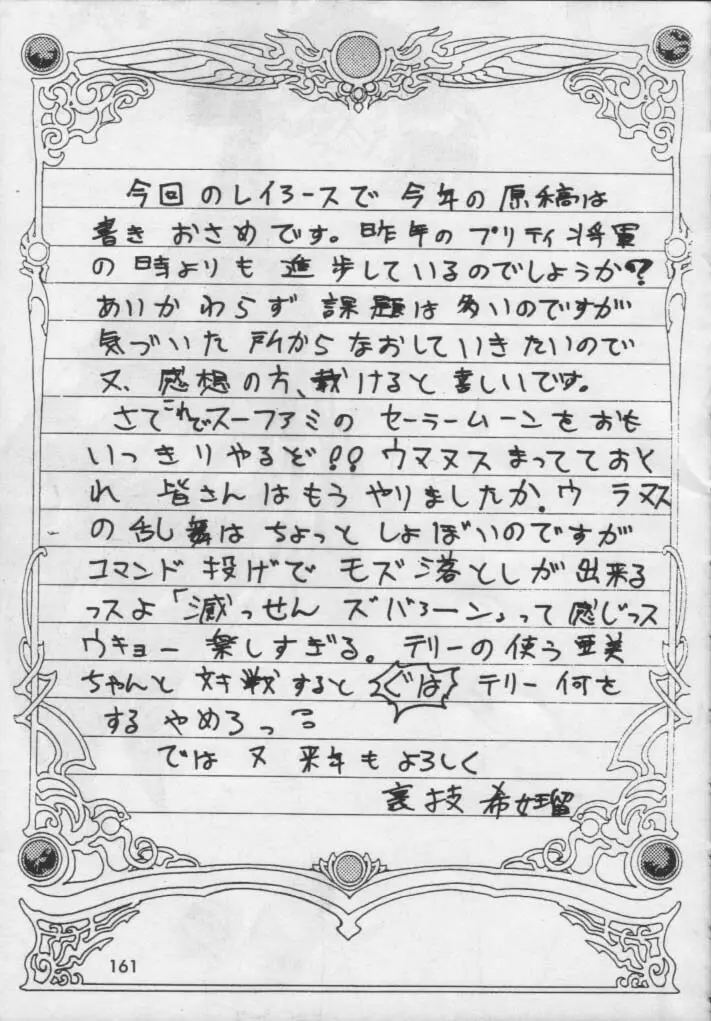 今回のレイアースで今年の原稿は
書きおさめです。昨年のプリティ将軍
の時よりも進歩しているのでしょうか?
あいかわらず課題は多いのですが
気づいた所からなおしていきたいので
又、感想の方、載けると喜しいです。
さてこれでスーファミのセーラームーンをおも
いっきりやるぞ!!ウマヌスまってておく
れ 皆さんはもうやりましたか。ウラヌス
の乱舞はちょっとしょぼいのですが
コマンド投げでモズ落としが出来る
っスよ「滅っせんズバろーン」って感じっス
ウキョー楽しすぎる。テリーの使う亜美
ちゃんと対戦すると ぐは テリー何を
するやめろっ
では又来年もよろしく
裏技 希女王留
161